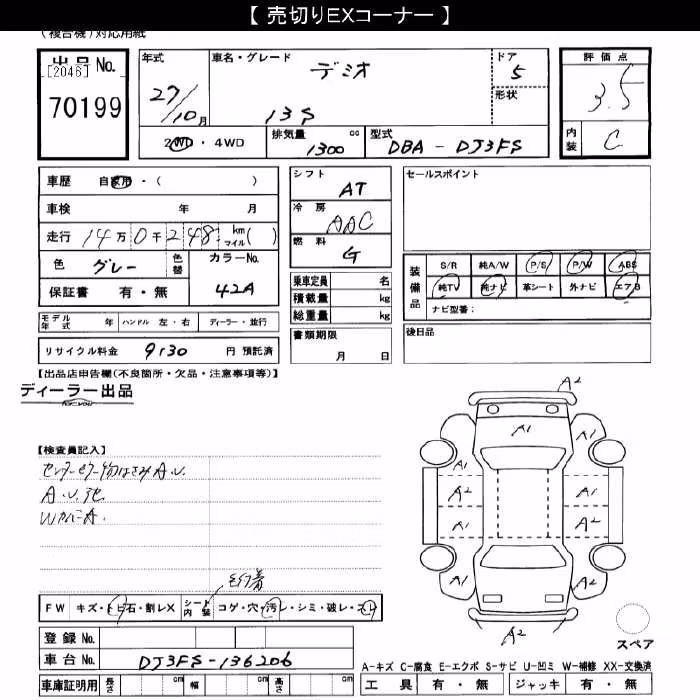 【 売切りEXコーナー 】
(複合機)対応用紙
出品 No.
[2046]
70199
年式
27/10月
車名・グレード
デミオ
13S
ドア
5
形状
評価点
3.5
内装
C
2WD・4WD
排気量 1300 cc
型式 DBA - DJ3FS
車歴 自家用・( )
車検 年 月
走行 14万0千248 km マイル( )
色 グレー 色替 カラーNo. 42A
保証書 有・無
モデル年式 年 ハンドル 左・右 ディーラー・並行
リサイクル料金 9130 円 預託済
シフト AT
冷房 AAC
燃料 G
乗車定員 名
積載量 kg
総重量 kg
書類期限
月 日
セールスポイント
装備品
S/R 純A/W P/S P/W ABS
純TV 純ナビ 革シート 外ナビ エアB
ナビ型番:
後日品
【出品店申告欄(不良箇所・欠品・注意事項等)】
ディーラー出品
【検査員記入】
A.U.
A.U.
A2
A1
A1
A1
A1
A2
A1
A1
A2
A2
A2
FW キズ・トビ石・割レX シート内装 コゲ・穴・汚レ・シミ・破レ・スレ
登録 No.
車台 No. DJ3FS-136206
車庫証明用 長さ cm 幅 cm 高さ cm
スペア
A-キズ C-腐食 E-エクボ S-サビ U-凹ミ W-補修 XX-交換済
工具 有・無 ジャッキ 有・無